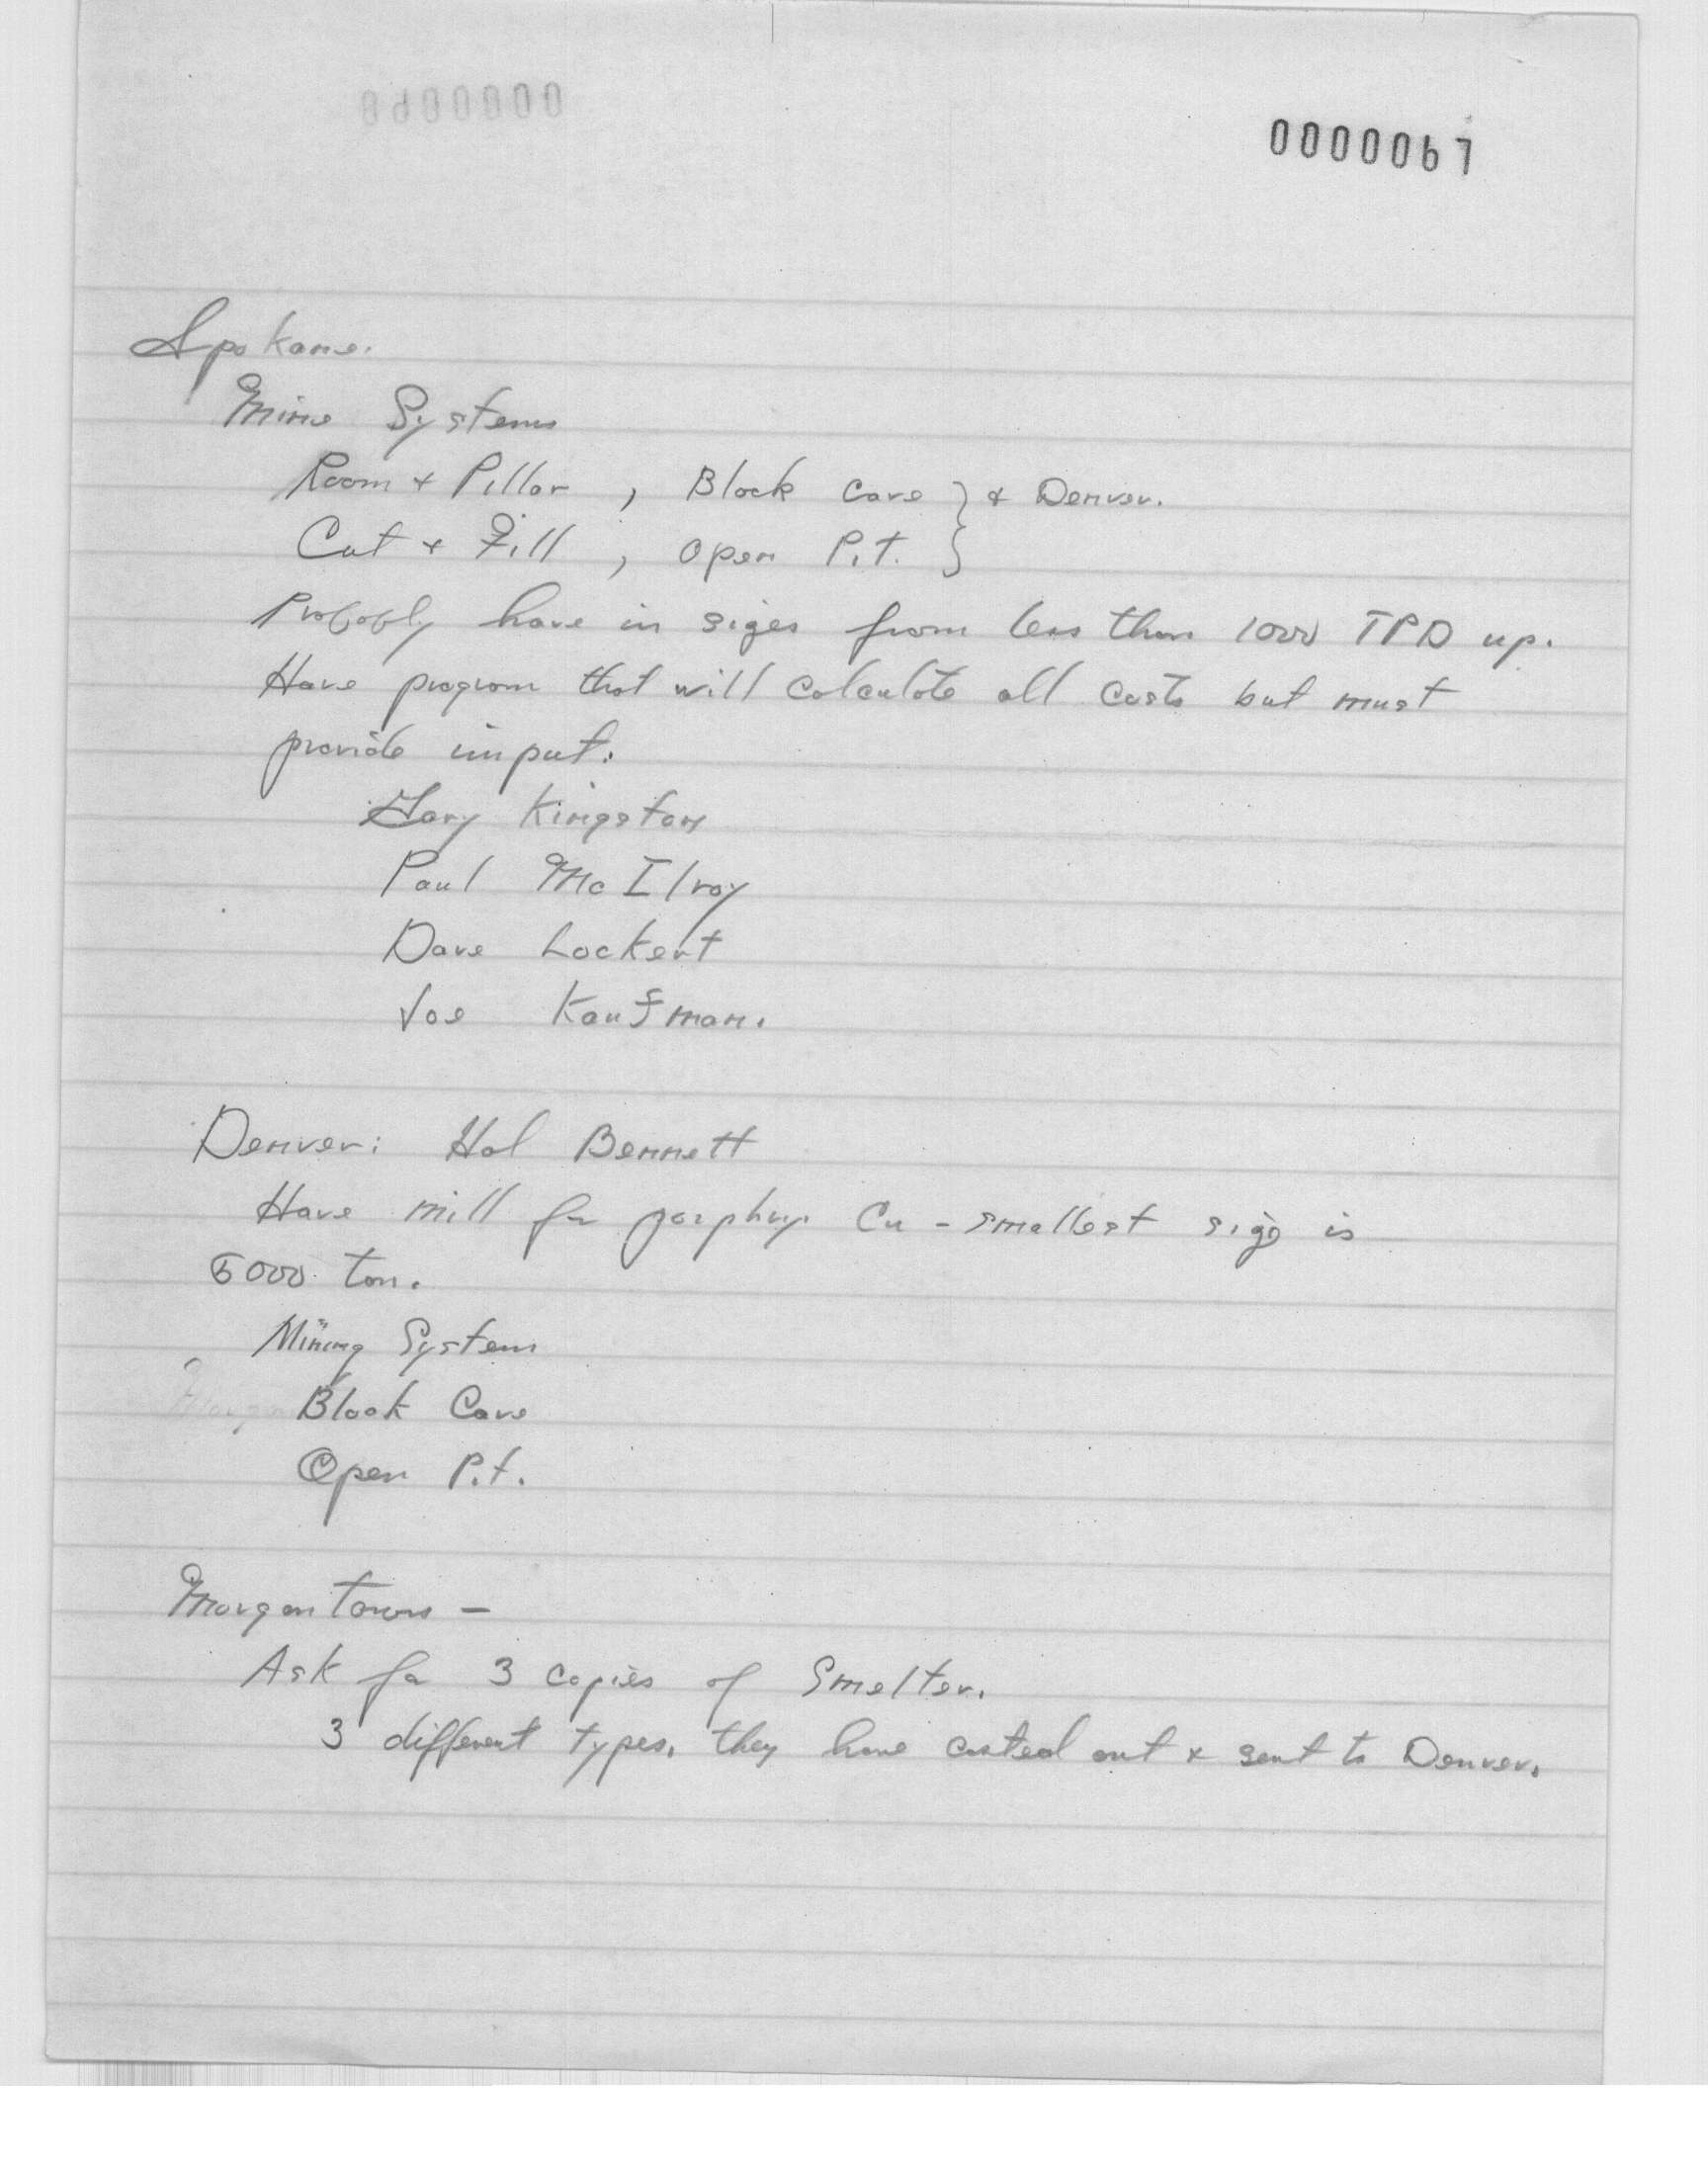 0000067
Spokane.
Mine Systems
Room + Pillar , Block Cave } & Denver.
Cut + Fill , Open Pit. }
Probably have in sizes from less than 1000 TPD up.
Have program that will calculate all costs but must
provide input.
Gary Kingston
Paul McIlroy
Dave Lockert
Joe Kaufman.
Denver: Hal Bennett
Have mill for porphyry Cu - smallest size is
5000 ton.
Mining System
Block Cave
Open Pit.
Morgantown -
Ask for 3 copies of Smelter.
3 different types, they have costed out & sent to Denver.